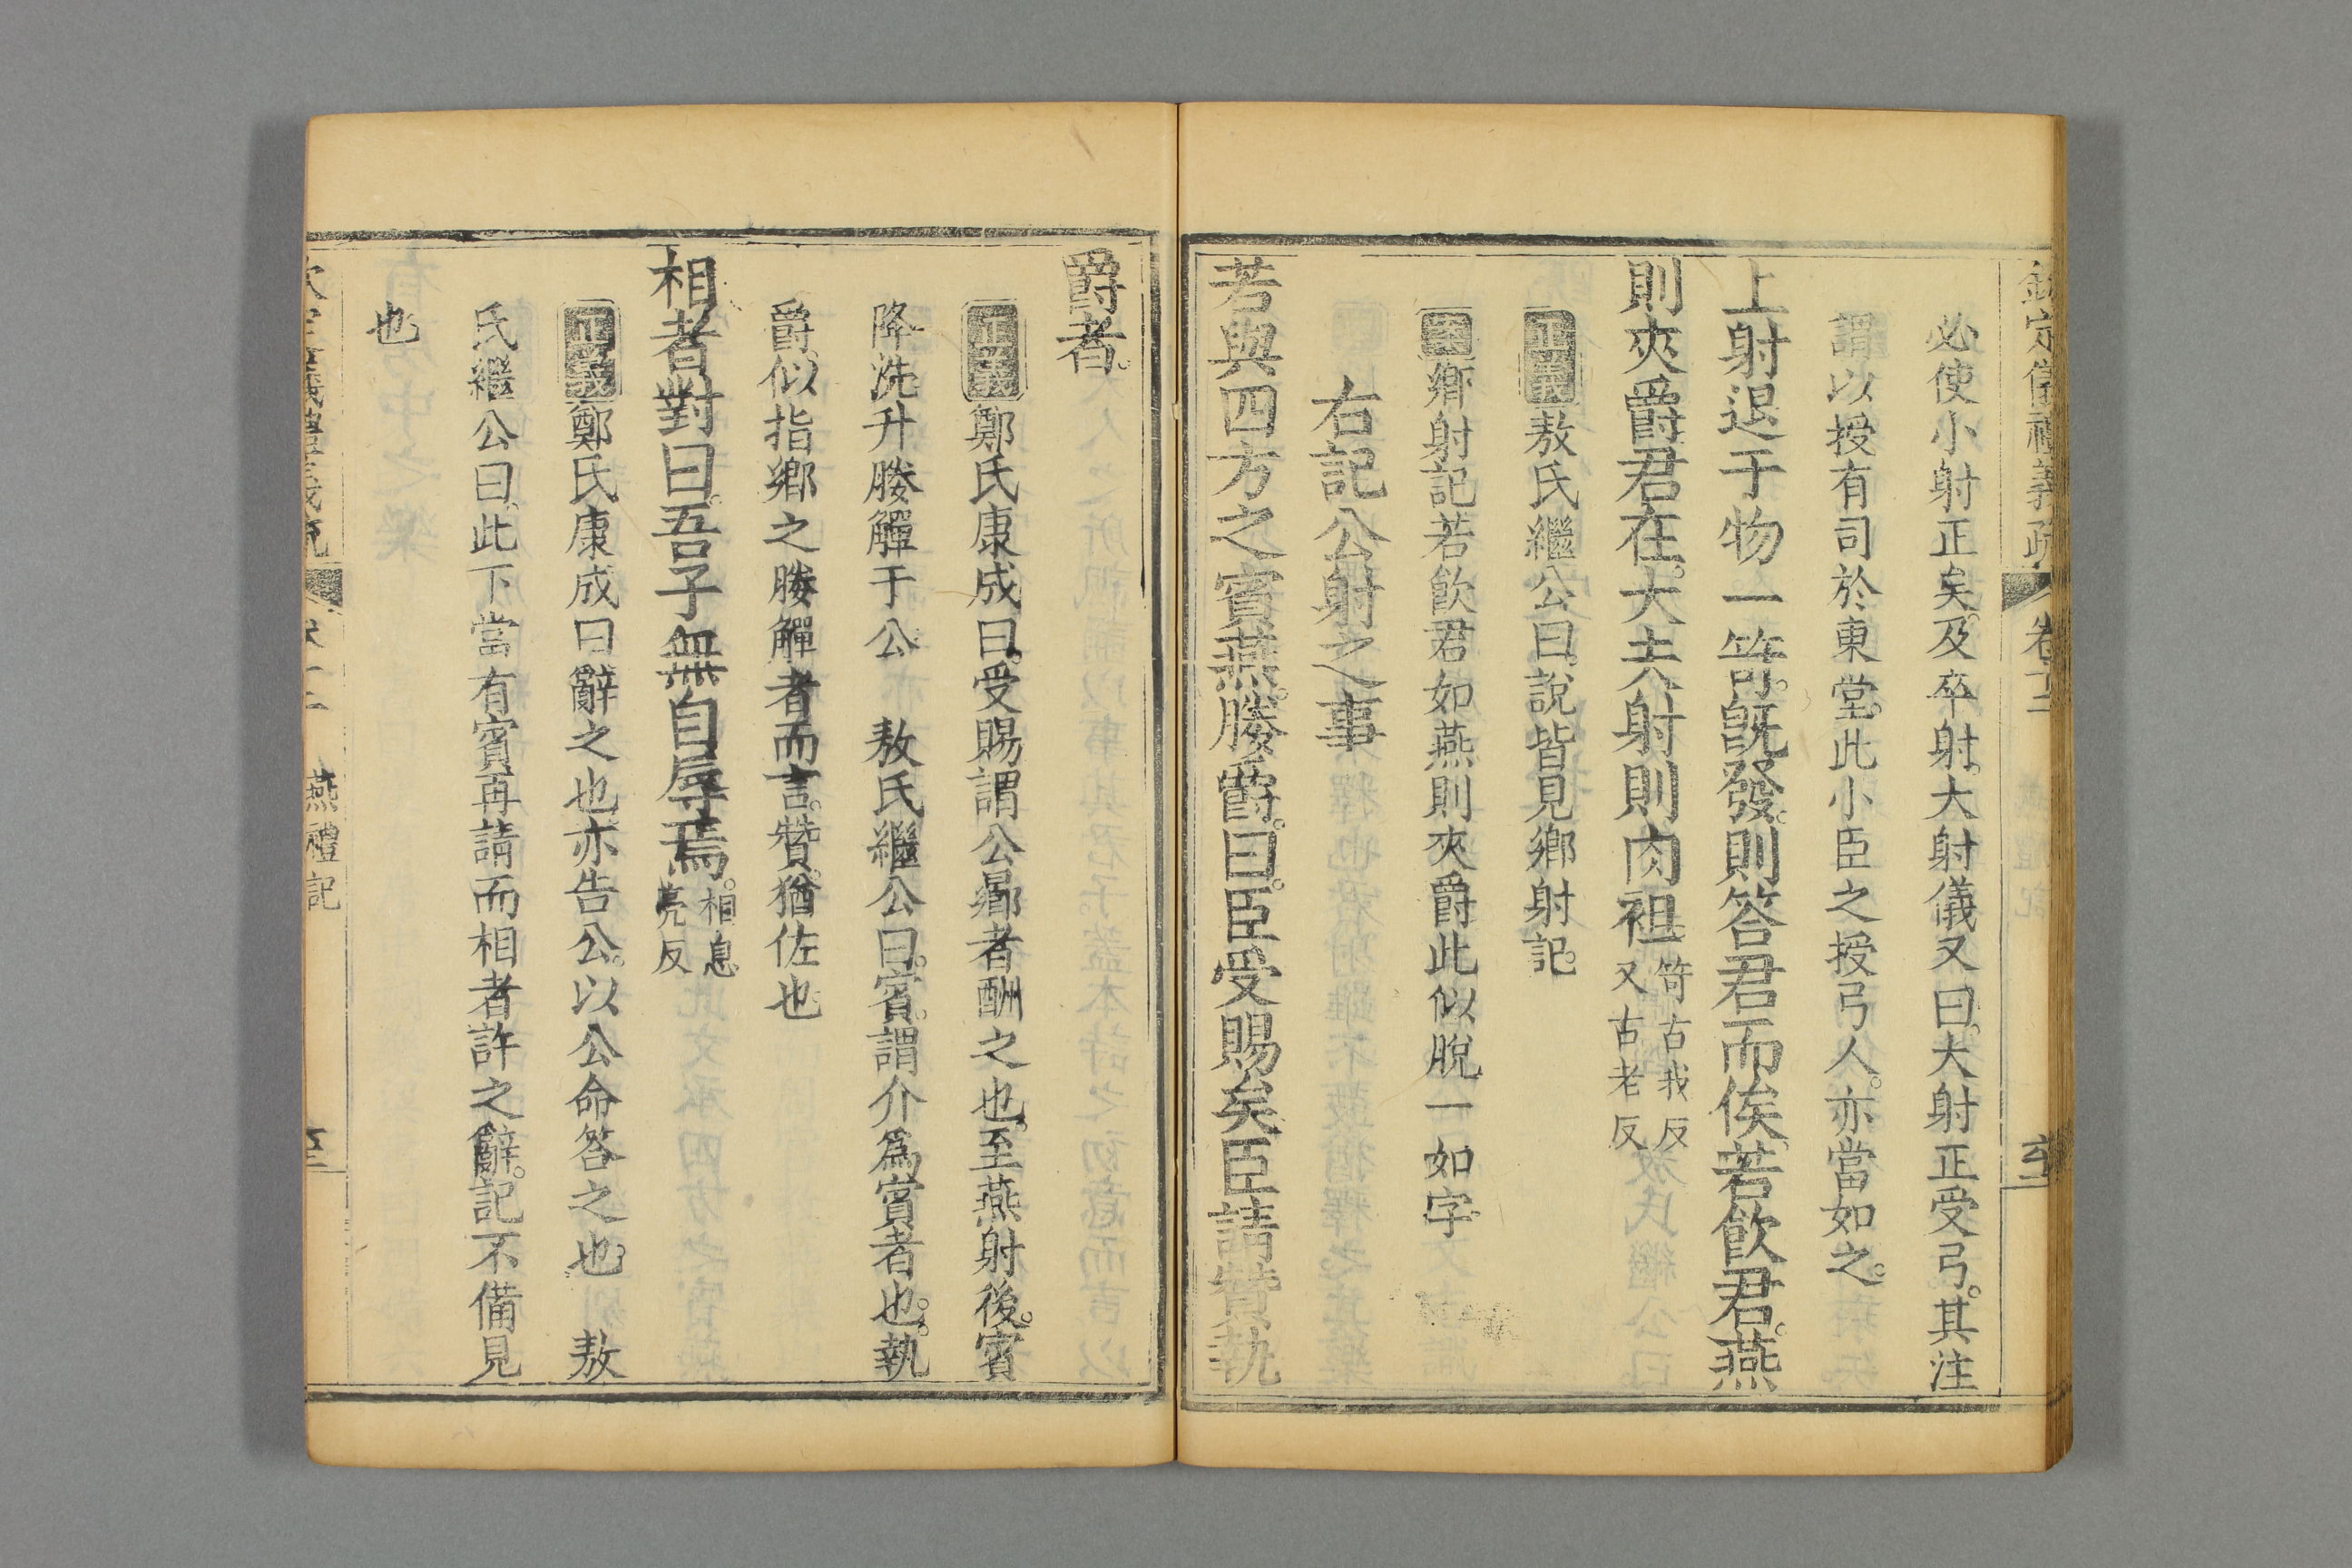 欽定儀禮義疏 卷十二
必使小射正矣。及卒射。大射儀又曰。大射正受弓。其注
謂以授有司於東堂。此小臣之授弓人。亦當如之。
上射退于物一笴。既發。則答君而俟。若飲君。燕
則夾爵。君在。大夫射則肉袒。笴古我反
又古老反
正義敖氏繼公曰。說皆見鄉射記。
案鄉射記若飲君如燕則夾爵此似脫一如字。
右記公射之事
若與四方之賓燕。媵爵。曰。臣受賜矣。臣請贊執
爵者。
正義鄭氏康成曰。受賜謂公鄉者酬之也。至燕射後。賓
降洗升媵觶于公 敖氏繼公曰。賓。謂介為賓者也。執
爵。似指鄉之媵觶者而言。贊。猶佐也。
相者對曰。吾子無自辱焉。相息
亮反
正義鄭氏康成曰辭之也。亦告公。以公命答之也 敖
氏繼公曰。此下當有賓再請而相者許之辭。記不備見
也
燕禮記